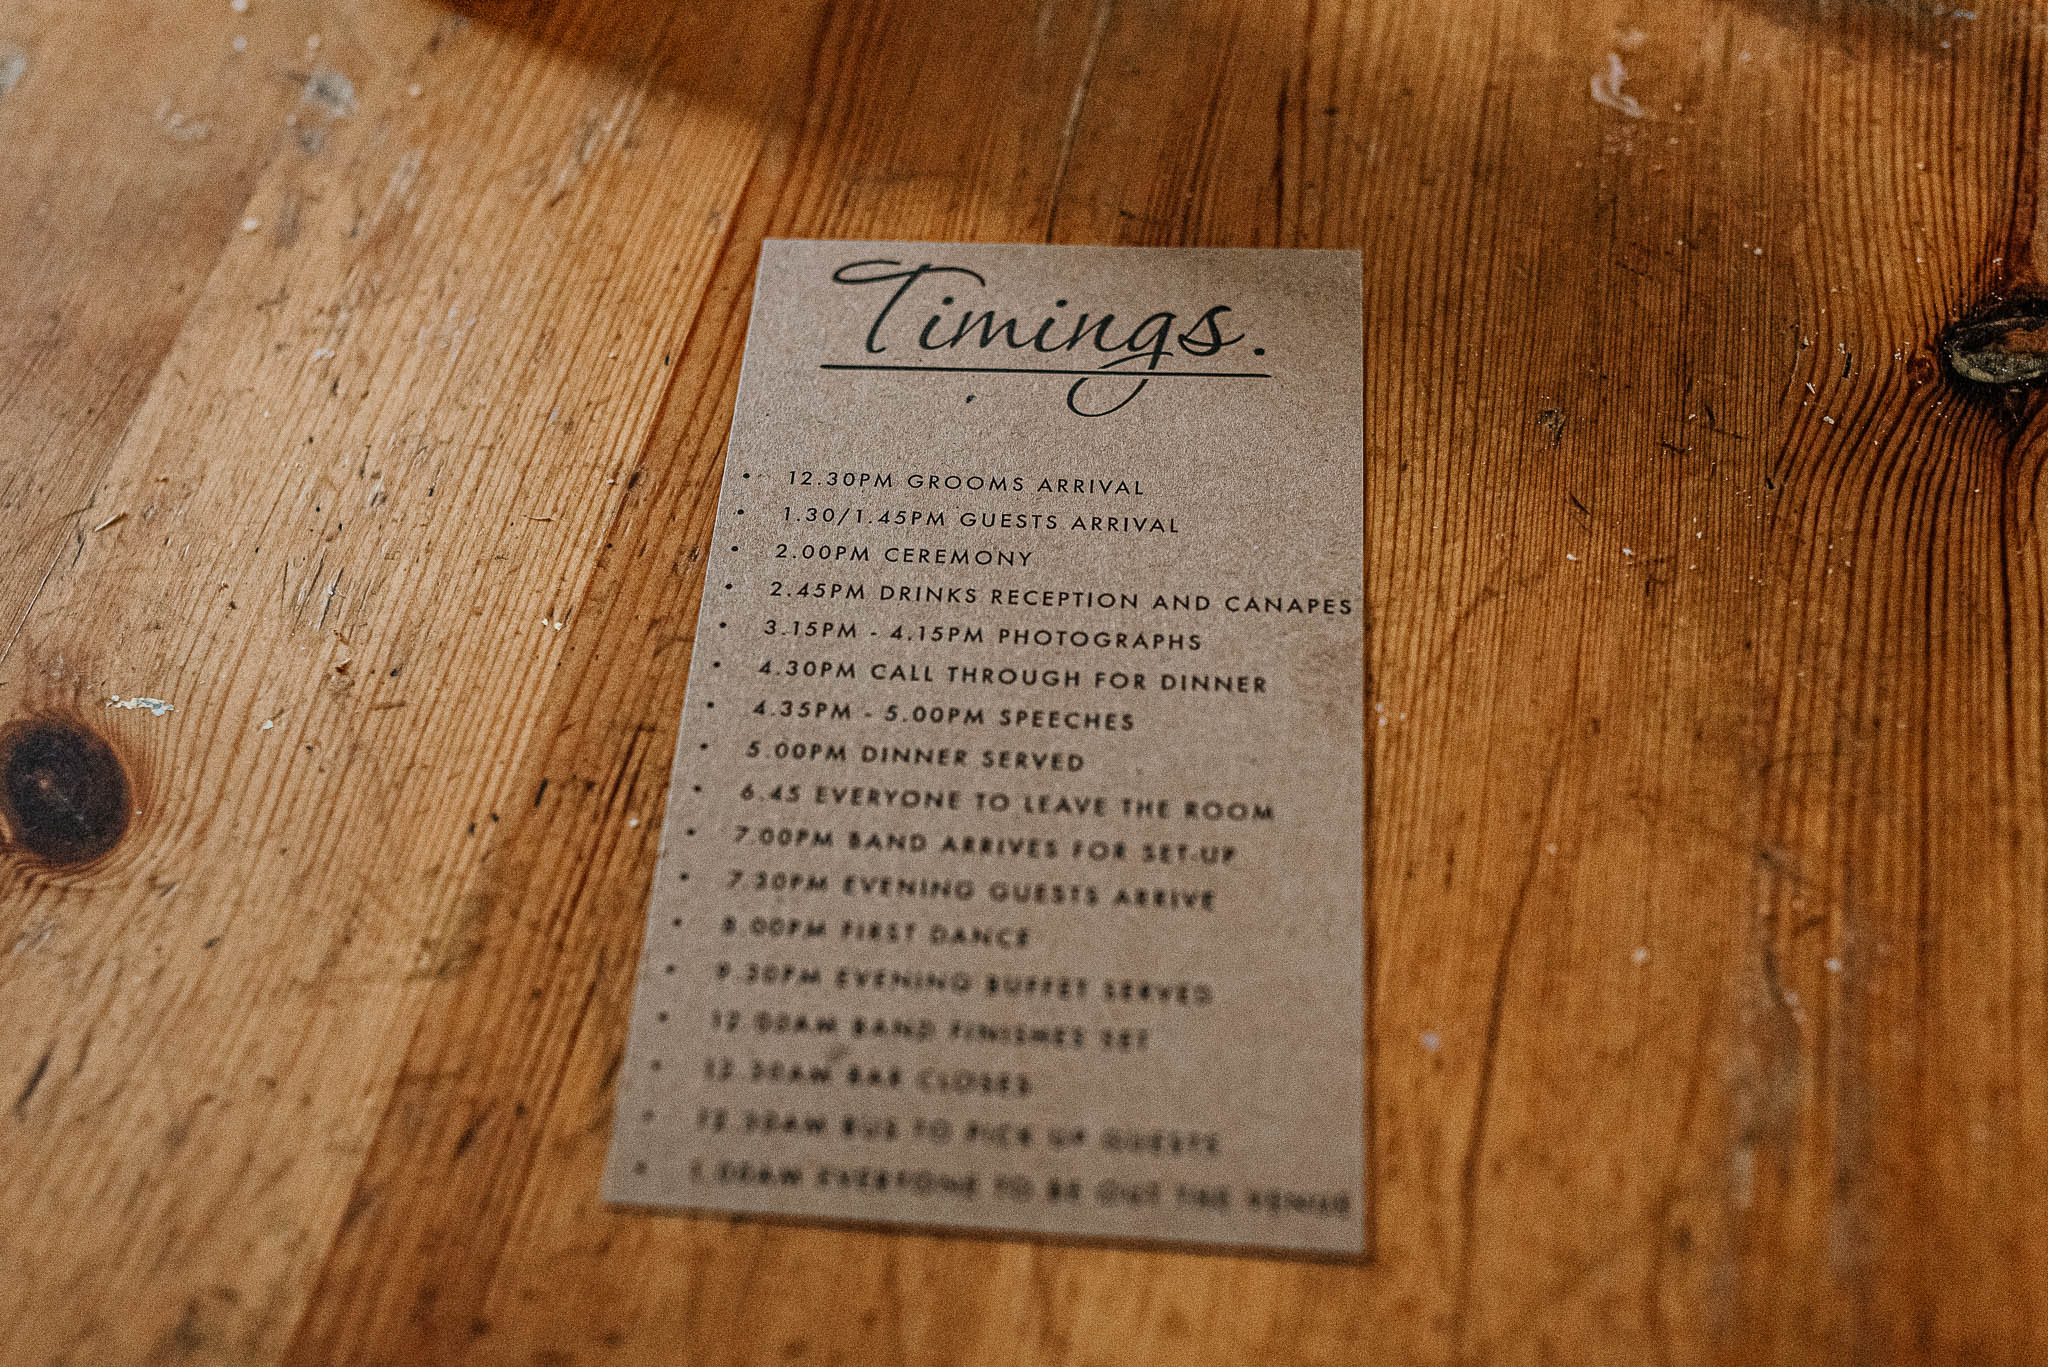 Timings.
• 12.30PM GROOMS ARRIVAL
• 1.30/1.45PM GUESTS ARRIVAL
• 2.00PM CEREMONY
• 2.45PM DRINKS RECEPTION AND CANAPES
• 3.15PM - 4.15PM PHOTOGRAPHS
• 4.30PM CALL THROUGH FOR DINNER
• 4.35PM - 5.00PM SPEECHES
• 5.00PM DINNER SERVED
• 6.45 EVERYONE TO LEAVE THE ROOM
• 7.00PM BAND ARRIVES FOR SET-UP
• 7.30PM EVENING GUESTS ARRIVE
• 8.00PM FIRST DANCE
• 9.30PM EVENING BUFFET SERVED
• 12.00AM BAND FINISHES SET
• 12.30AM BAR CLOSES
• 12.30AM BUS TO PICK UP GUESTS
• 1.00AM EVERYONE TO BE OUT THE VENUE